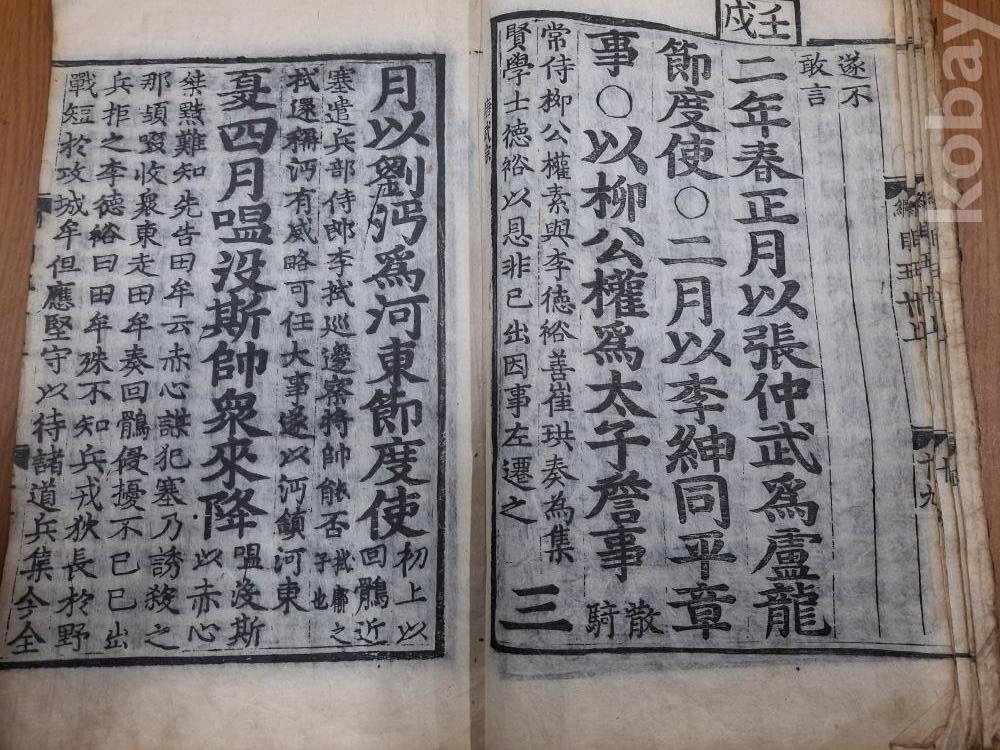 壬戌
遂不
敢言
二年春正月以張仲武爲盧龍
節度使○二月以李紳同平章
事○以柳公權爲太子詹事散
騎
常侍柳公權素與李德裕善崔珙奏為集
賢學士德裕以恩非已出因事左遷之
三
月以劉沔爲河東節度使初上以
回鶻近
塞遣兵部侍郎李拭巡邊察將帥能否拭鄘之
子也
拭還稱沔有威略可任大事遂以沔鎮河東
夏四月嗢没斯帥衆來降嗢没斯
以赤心
桀黠難知先告田牟云赤心謀犯塞乃誘殺之
那頡啜收衆東走田牟奏回鶻侵擾不已已出
兵拒之李德裕曰田牟殊不知兵戎狄長於野
戰短於攻城牟但應堅守以待諸道兵集今全
十九
kobay